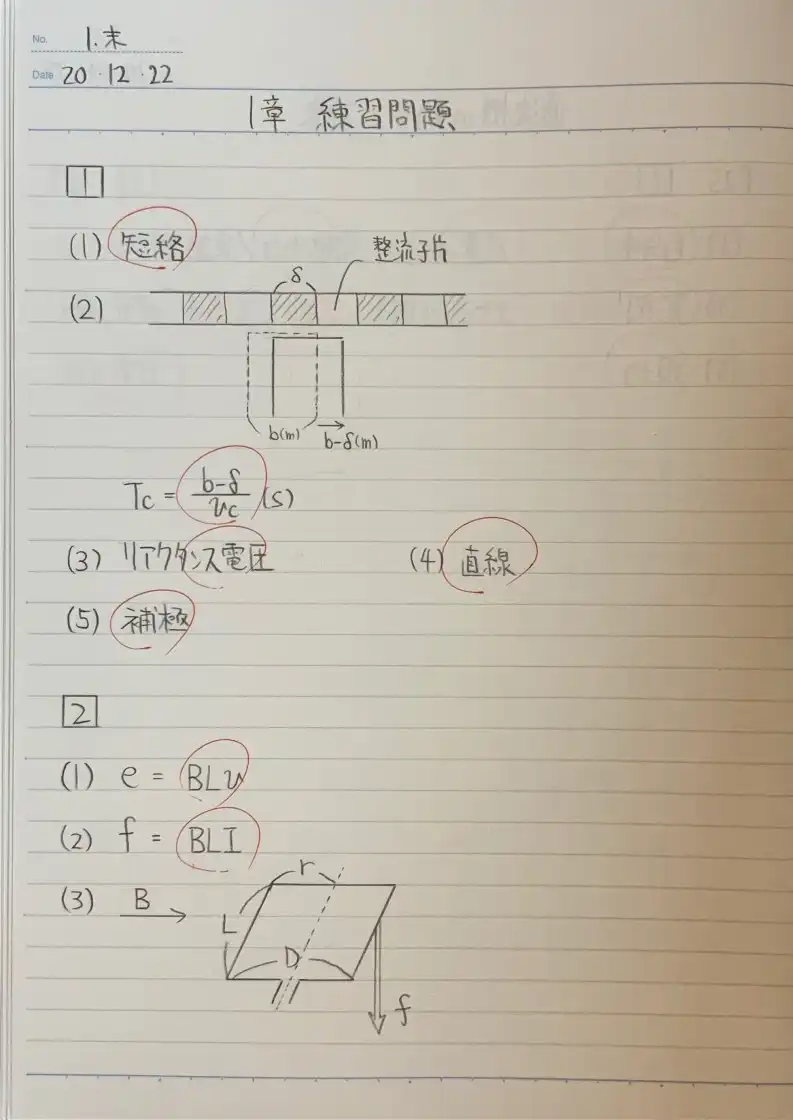 No. 1.末
Date 20・12・22
1章 練習問題
1
(1) 短絡
整流子片
δ
(2)
b(m) b-δ(m)
Tc = b-δ/vc (s)
(3) リアクタンス電圧 (4) 直線
(5) 補極
2
(1) e = BLv
(2) f = BLI
(3) B
r
L
D
f